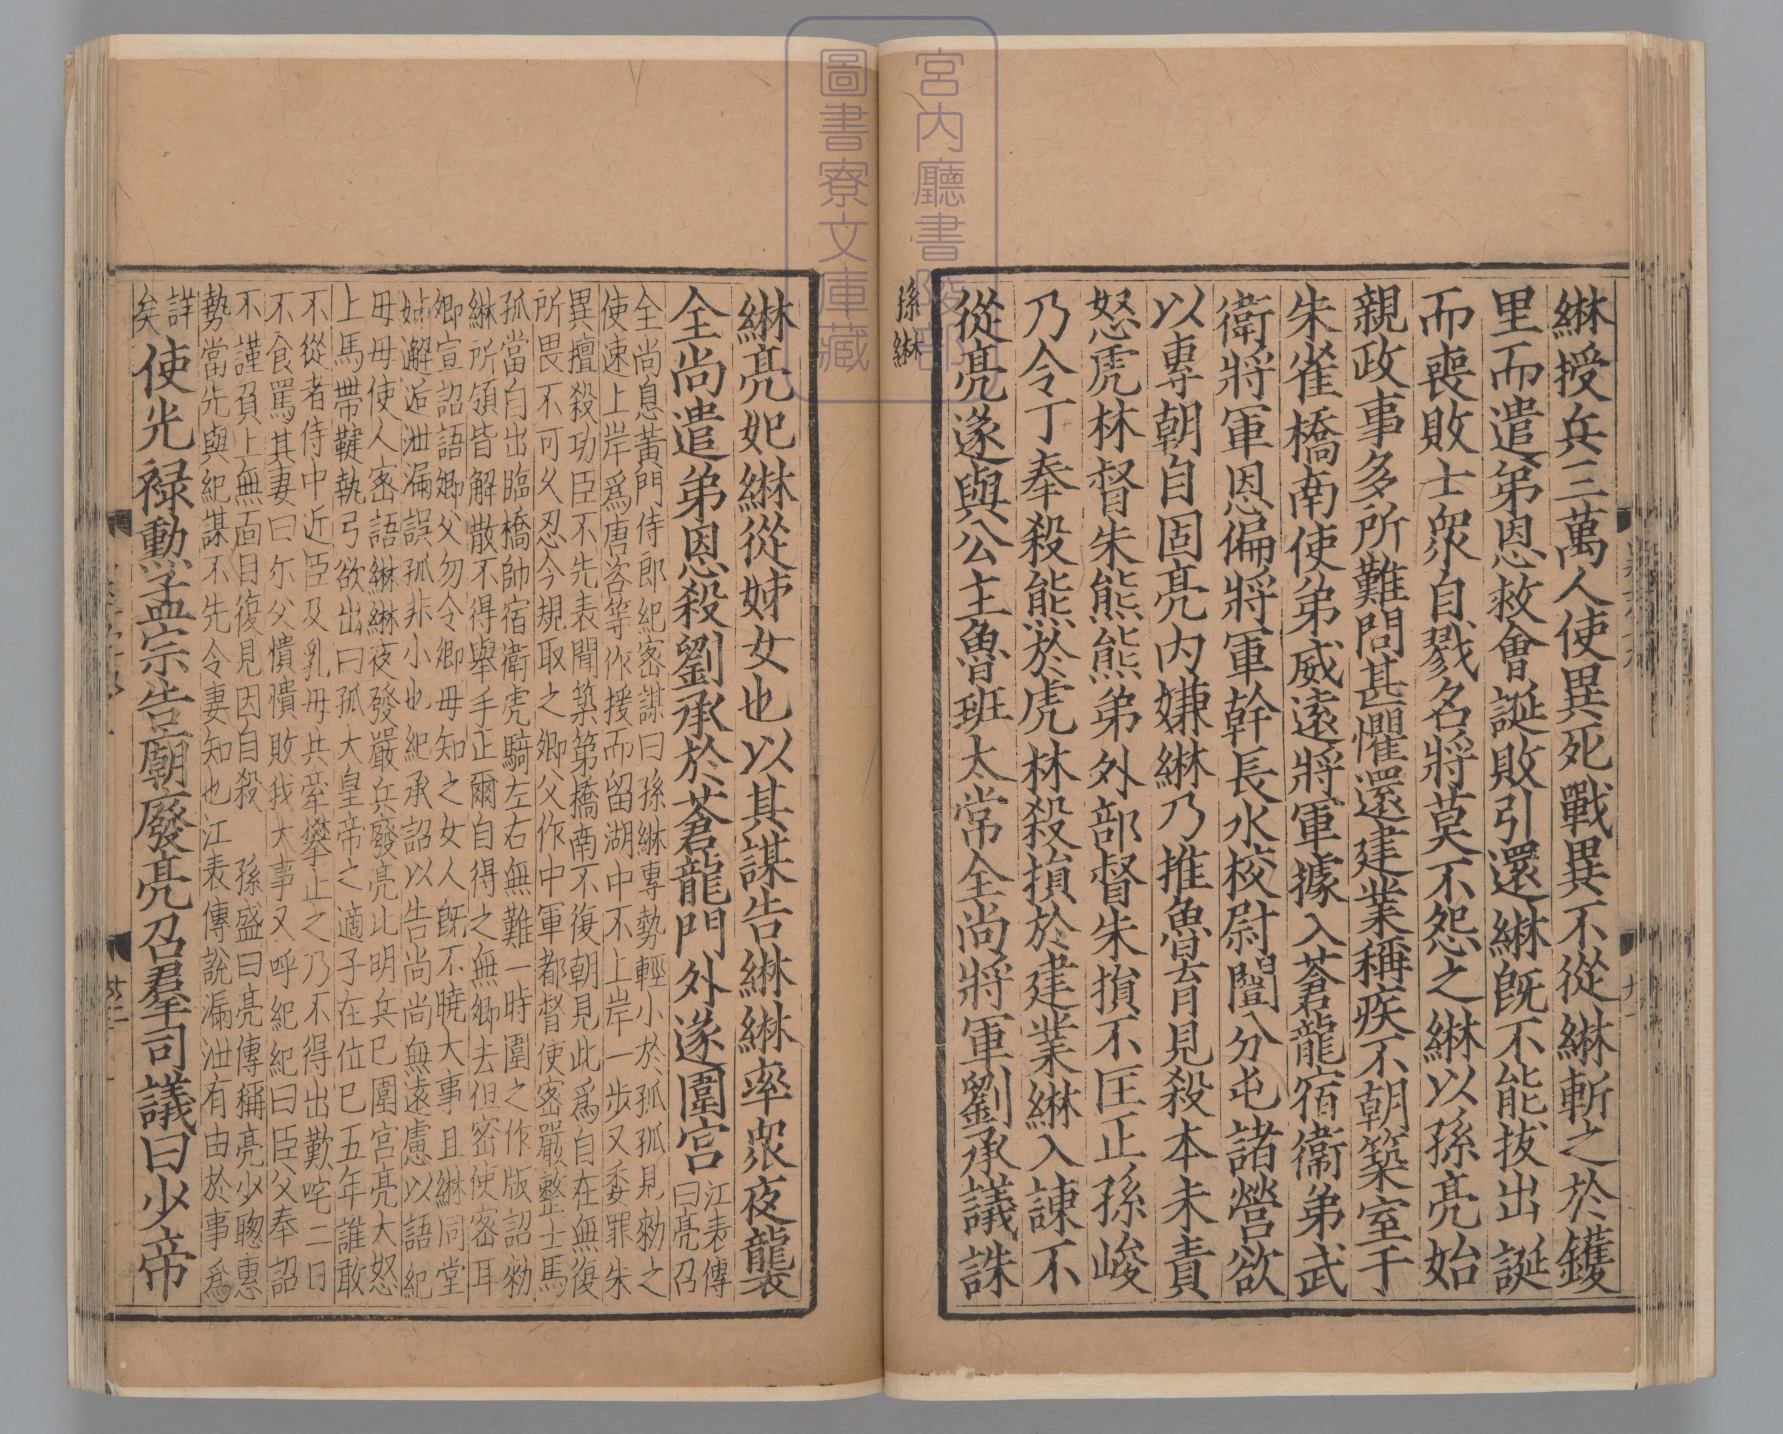 綝授兵三萬人使異死戰異不從綝斬之於鑊
里而遣弟恩救會誕敗引還綝旣不能拔出誕
而喪敗士衆自戮名將莫不怨之綝以孫亮始
親政事多所難問甚懼還建業稱疾不朝築室于
朱雀橋南使弟威遠將軍據入蒼龍宿衛弟武
衛將軍恩偏將軍幹長水校尉闓分屯諸營欲
以專朝自固亮内嫌綝乃推魯育見殺本末責
怒虎林督朱熊熊弟外部督朱損不匡正孫峻
乃令丁奉殺熊於虎林殺損於建業綝入諫不
從亮遂與公主魯班太常全尚將軍劉承議誅
孫綝
宮内廳書陵部
圖書寮文庫藏
綝亮妃綝從姊女也以其謀告綝綝率衆夜襲
全尚遣弟恩殺劉承於蒼龍門外遂圍宮江表傳
曰亮召
全尚息黃門侍郎紀密謀曰孫綝專勢輕小於孤孤見勑之
使速上岸爲唐咨等作援而留湖中不上岸一步又委罪朱
異擅殺功臣不先表聞築第橋南不復朝見此爲自在無復
所畏不可久忍今規取之卿父作中軍都督使密嚴整士馬
孤當自出臨橋帥宿衛虎騎左右無難一時圍之作版詔勑
綝所領皆解散不得舉手正爾自得之無卿去但密使密耳
卿宣詔語卿父勿令卿母知之女人旣不曉大事且綝同堂
姊邂逅泄漏誤孤非小也紀承詔以告尚尚無遠慮以語紀
母母使人密語綝綝夜發嚴兵廢亮比明兵已圍宮亮大怒
上馬帶鞬執弓欲出曰孤大皇帝之適子在位已五年誰敢
不從者侍中近臣及乳母共牽攀止之乃不得出歎咤二日
不食罵其妻曰尒父憒憒敗我大事又呼紀紀曰臣父奉詔
不謹負上無面目復見因自殺　孫盛曰亮傳稱亮少聰惠
勢當先與紀謀不先令妻知也江表傳說漏泄有由於事爲
詳
矣使光祿勳孟宗告廟廢亮召羣司議曰少帝